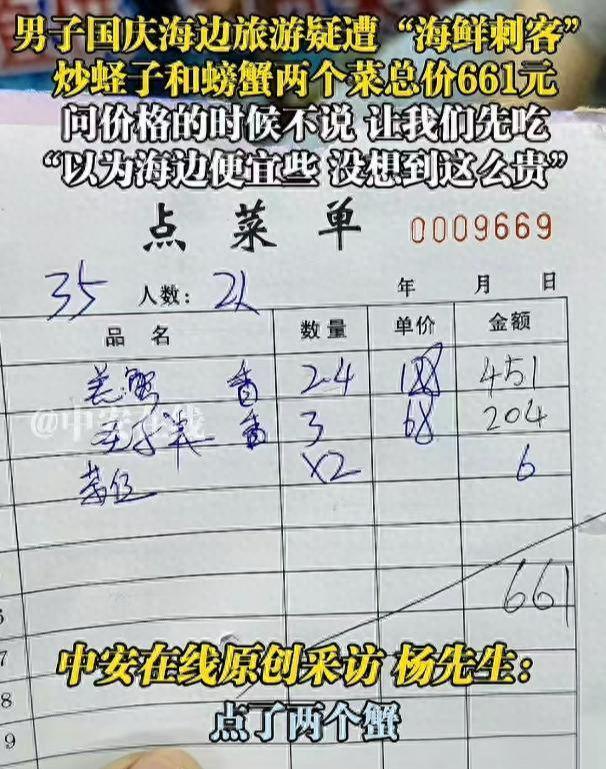 男子国庆海边旅游疑遭“海鲜刺客”
炒蛏子和螃蟹两个菜总价661元
问价格的时候不说 让我们先吃
“以为海边便宜些 没想到这么贵”
点菜单 0009669
35 人数: 2人 年 月 日
品名 数量 单价 金额
蟹 香 2.4 188 451
3 68 204
茶位 X2 6
661
@中安在线
7
8
9
中安在线原创采访 杨先生:
点了两个蟹